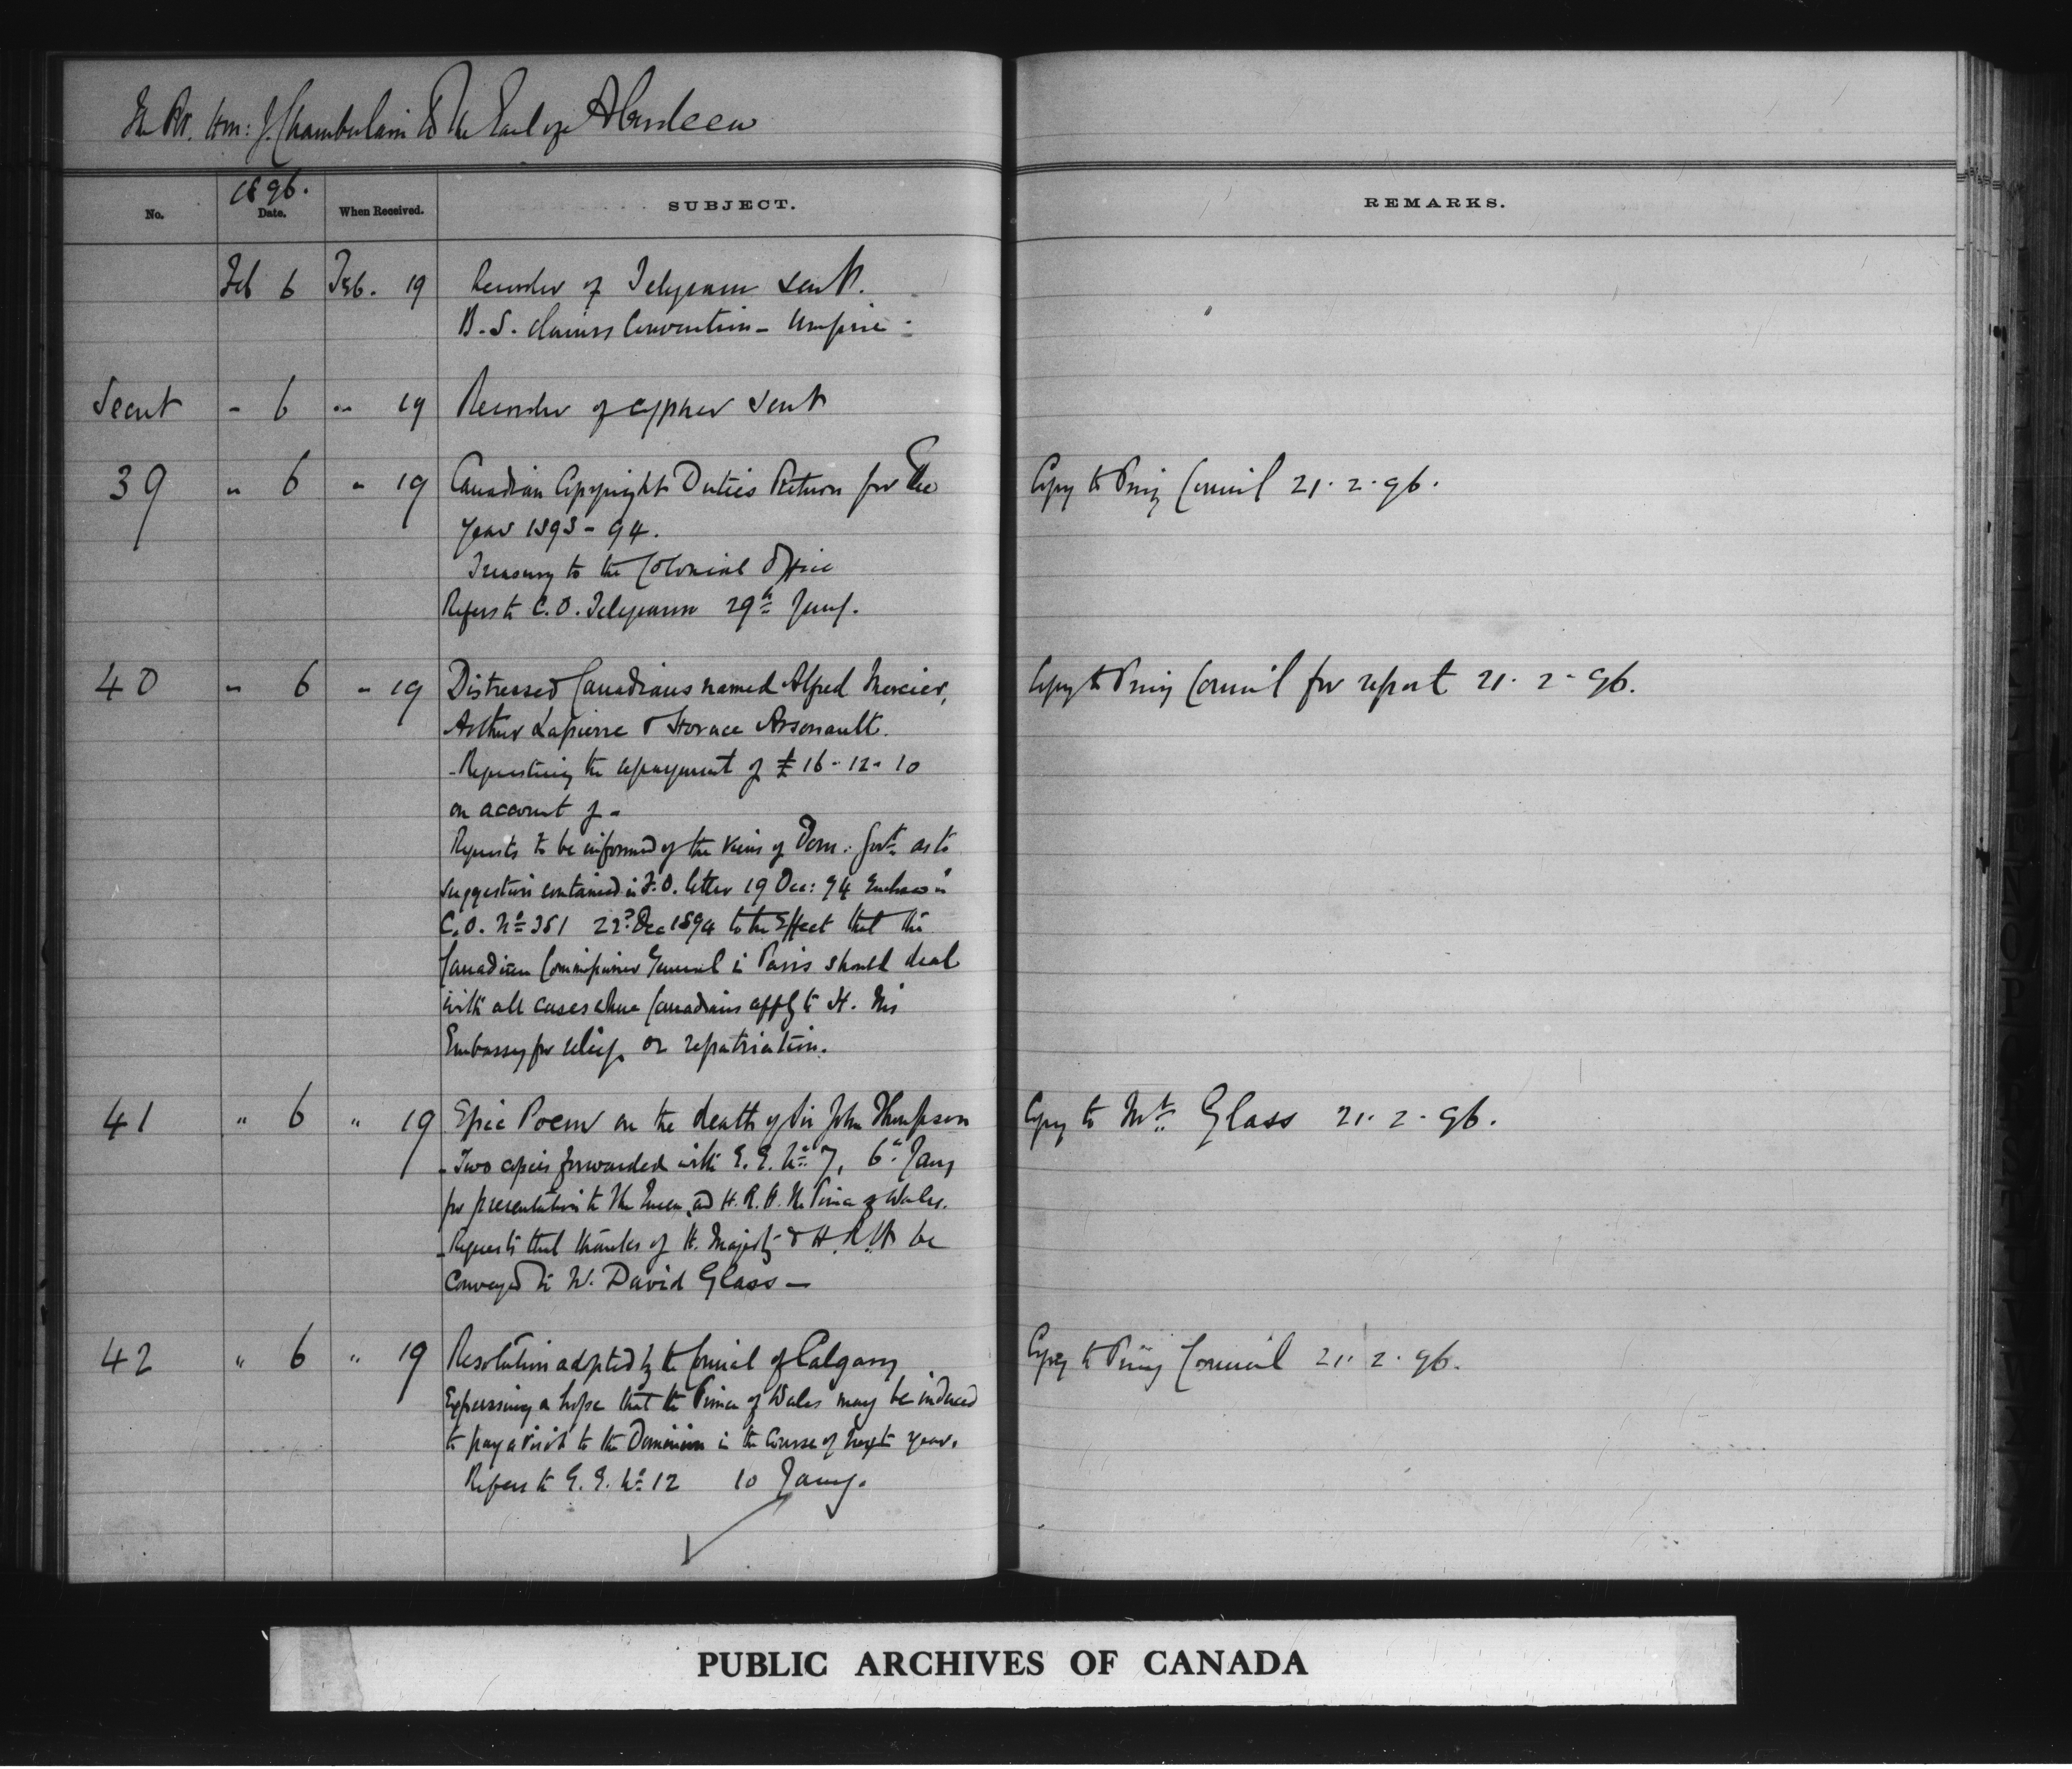 The Rt. Hon: J. Chamberlain to The Earl of Aberdeen
1896.
No. Date. When Received. SUBJECT. REMARKS.
Feb 6 Feb. 19 Recorder of Telegram sent.
B.S. Claims Convention - Umpire -
Secret " 6 " 19 Recorder of cypher sent
39 " 6 " 19 Canadian Copyright Duties Return for the Copy to Privy Council 21.2.96.
year 1893-94.
Treasury to the Colonial Office
Refers to C.O. Telegram 29th Jany.
40 " 6 " 19 Distressed Canadians named Alfred Mercier, Copy to Privy Council for report 21.2.96.
Arthur Lapierre & Horace Arsonault.
- Requesting the repayment of £16-12-10
on account of -
Requests to be informed of the views of Dom: Govt. as to
suggestion contained in F.O. letter 19 Dec: 94
C.O. No 351 22d Dec 1894 to the effect that the
Canadian Commissioner General in Paris should deal
with all cases where Canadians apply to H. M's
Embassy for relief or repatriation.
41 " 6 " 19 Epic Poem on the death of Sir John Thompson Copy to Mr. Glass 21.2.96.
- Two copies forwarded with G.G. No 7, 6th Jany
for presentation to The Queen and H.R.H. the Prince of Wales.
- Requests that thanks of H. Majesty & H.R.H. be
conveyed to David Glass -
42 " 6 " 19 Resolution adopted by the Council of Calgary Copy to Privy Council 21.2.96.
Expressing a hope that the Prince of Wales may be induced
to pay a visit to the Dominion in the course of next year.
Refers to G.G. No 12 10 Jany.
PUBLIC ARCHIVES OF CANADA